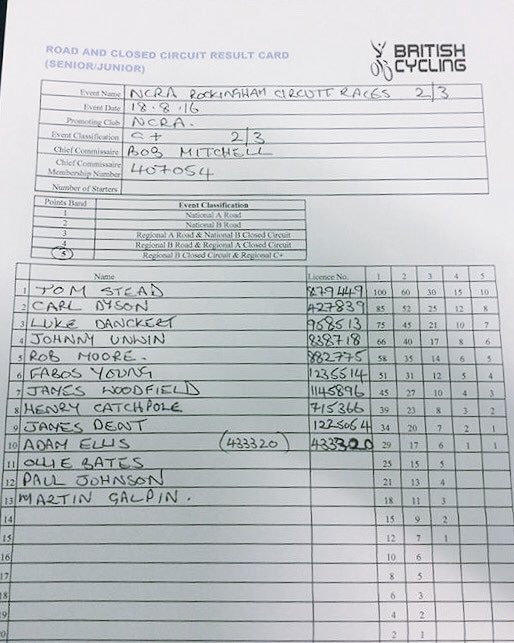 ROAD AND CLOSED CIRCUIT RESULT CARD
(SENIOR/JUNIOR)
BRITISH
CYCLING
Event Name NCRA ROCKINGHAM CIRCUIT RACES 2/3
Event Date 18.8.16
Promoting Club NCRA.
Event Classification C+ 2/3
Chief Commissaire BOB MITCHELL
Chief Commissaire
Membership Number 407054
Number of Starters
Points Band Event Classification
1 National A Road
2 National B Road
3 Regional A Road & National B Closed Circuit
4 Regional B Road & Regional A Closed Circuit
5 Regional B Closed Circuit & Regional C+
Name Licence No. 1 2 3 4 5
1 TOM STEAD 879449 100 60 30 15 10
2 CARL DYSON 427839 85 52 25 12 8
3 LUKE DANCKERT 958513 75 45 21 10 7
4 JOHNNY UNWIN 838718 66 40 17 8 6
5 ROB MOORE. 882775 58 35 14 6 5
6 FABOS YOUNG 1235514 51 31 12 5 4
7 JAMES WOODFIELD 1145896 45 27 10 4 3
8 HENRY CATCHPOLE 715366 39 23 8 3 2
9 JAMES DENT 1225064 34 20 7 2 1
10 ADAM ELLIS (433320) 433320 29 17 6 1 1
11 OLLIE BATES 25 15 5
12 PAUL JOHNSON 21 13 4
13 MARTIN GALPIN. 18 11 3
14 15 9 2
15 12 7 1
16 10 6
17 8 5
18 6 3
19 4 2
20 2 1